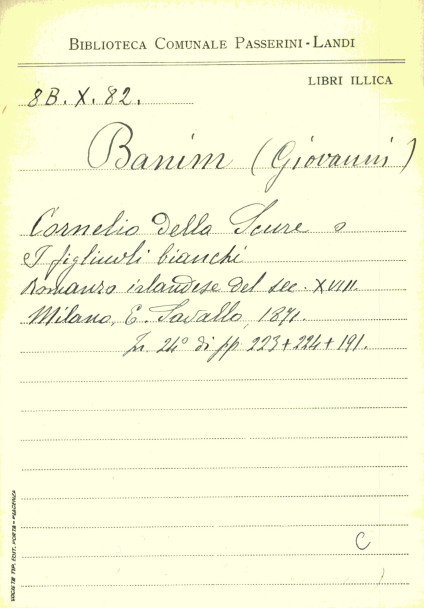 BIBLIOTECA COMUNALE PASSERINI-LANDI
LIBRI ILLICA
8B. X. 82.
Banim (Giovanni)
Cornelio della Scure o
I figliuoli bianchi
Romanzo irlandese del sec. XVIII.
Milano, E. Savallo, 1871.
In 24° di pp. 223+224+191.
C